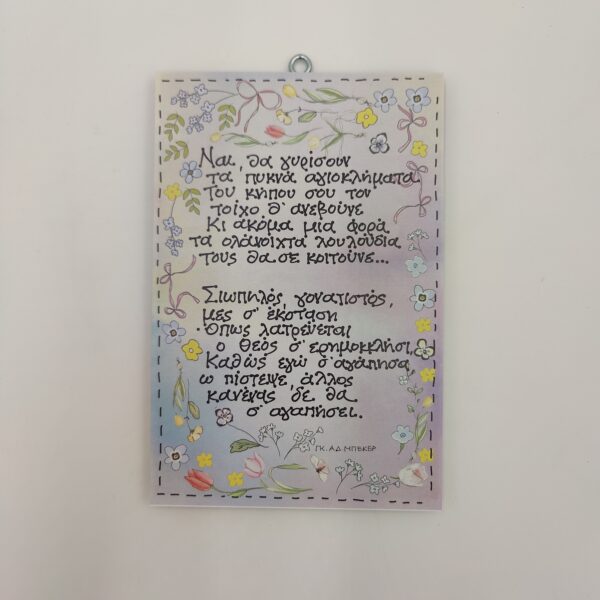 Ναι, θα γυρίσουν
τα πυκνά αγιοκλήματα
Του κήπου σου τον
τοίχο θ' ανεβούνε
Κι ακόμα μια φορά
τα ολάνοιχτα λουλούδια
τους θα σε κοιτούνε...
Σιωπηλός, γονατιστός,
μες σ' έκσταση
Όπως λατρεύεται
ο θεός σ' ερημοκκλήσι,
Καθώς εγώ σ' αγάπησα
ω πίστεψε, άλλος
κανένας δε θα
σ' αγαπήσει.
ΓΚ. ΑΔ. ΜΠΕΚΕΡ